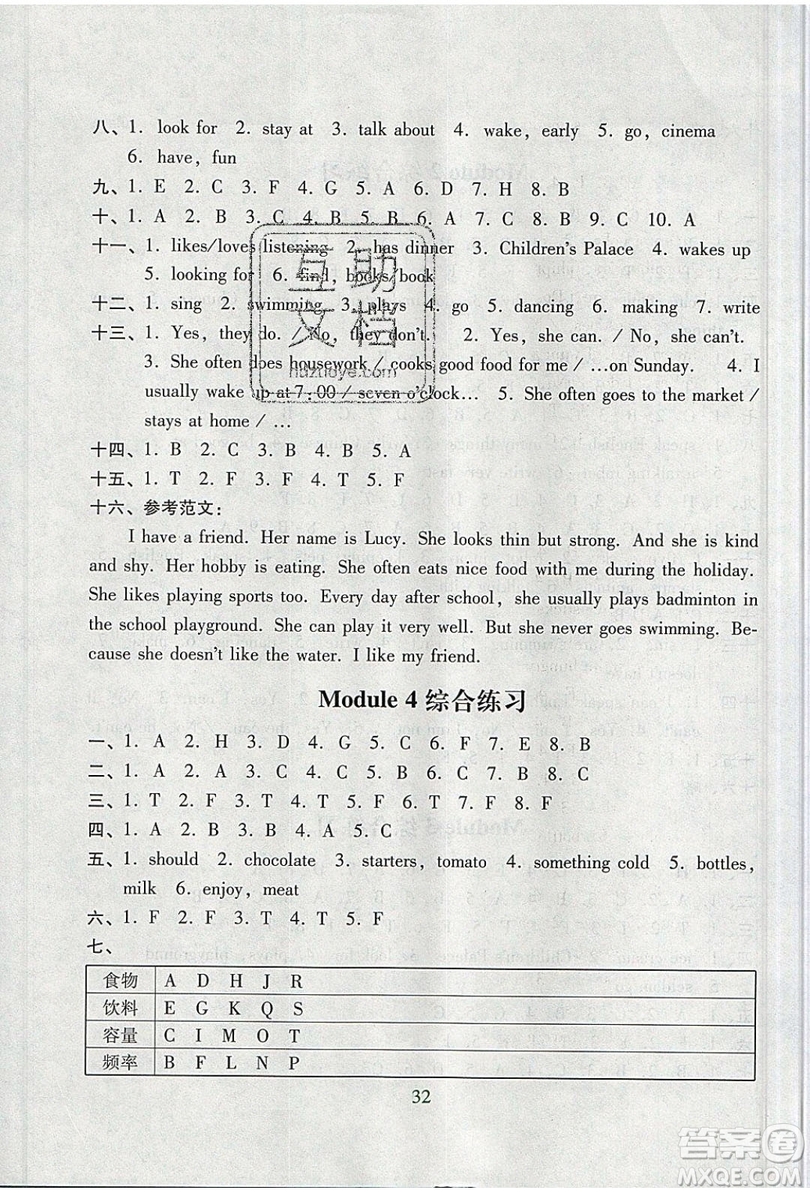 八、1. look for 2. stay at 3. talk about 4. wake, early 5. go, cinema
6. have, fun
九、1. E 2. C 3. F 4. G 5. A 6. D 7. H 8. B
十、1. A 2. B 3. C 4. B 5. B 6. A 7. C 8. B 9. C 10. A
十一、1. likes/loves listening 2. has dinner 3. Children's Palace 4. wakes up
5. looking for 6. find, books/book
十二、1. sing 2. swimming 3. plays 4. go 5. dancing 6. making 7. write
十三、1. Yes, they do. / No, they don't. 2. Yes, she can. / No, she can't.
3. She often does housework / cooks good food for me / …on Sunday. 4. I
usually wake up at 7:00 / seven o'clock… 5. She often goes to the market /
stays at home / …
十四、1. B 2. C 3. B 4. B 5. A
十五、1. T 2. F 3. F 4. T 5. F
十六、参考范文：
I have a friend. Her name is Lucy. She looks thin but strong. And she is kind
and shy. Her hobby is eating. She often eats nice food with me during the holiday.
She likes playing sports too. Every day after school, she usually plays badminton in
the school playground. She can play it very well. But she never goes swimming. Be-
cause she doesn't like the water. I like my friend.
Module 4 综合练习
一、1. A 2. H 3. D 4. G 5. C 6. F 7. E 8. B
二、1. A 2. B 3. A 4. C 5. B 6. C 7. B 8. C
三、1. T 2. F 3. T 4. T 5. F 6. F 7. T 8. F
四、1. A 2. B 3. B 4. A 5. C
五、1. should 2. chocolate 3. starters, tomato 4. something cold 5. bottles,
milk 6. enjoy, meat
六、1. F 2. F 3. T 4. T 5. F
七、
食物 A D H J R
饮料 E G K Q S
容量 C I M O T
频率 B F L N P
32
互助
文档
huzuoye.com
答案圈
MXQE.COM